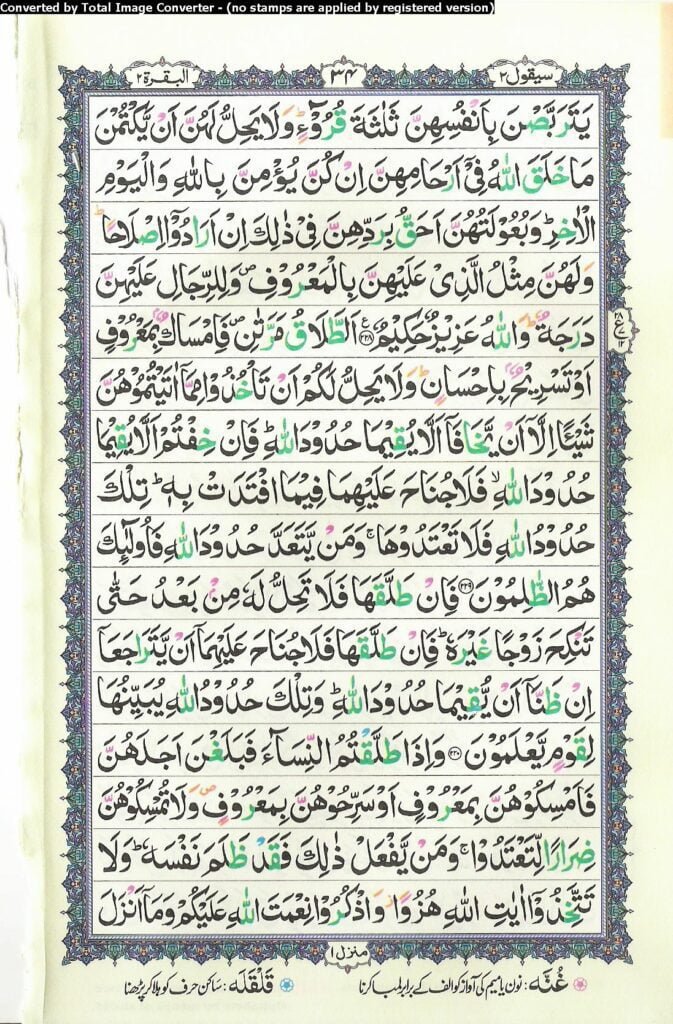 Converted by Total Image Converter - (no stamps are applied by registered version)
سیقول ٢
٣٤
البقرة ٢
يَتَرَبَّصْنَ بِاَنْفُسِهِنَّ ثَلٰثَةَ قُرُوْٓءٍ ؕ وَلَا يَحِلُّ لَهُنَّ اَنْ يَّكْتُمْنَ
مَا خَلَقَ اللّٰهُ فِيْٓ اَرْحَامِهِنَّ اِنْ كُنَّ يُؤْمِنَّ بِاللّٰهِ وَالْيَوْمِ
الْاٰخِرِ ؕ وَبُعُوْلَتُهُنَّ اَحَقُّ بِرَدِّهِنَّ فِيْ ذٰلِكَ اِنْ اَرَادُوْٓا اِصْلَاحًا ؕ
وَلَهُنَّ مِثْلُ الَّذِيْ عَلَيْهِنَّ بِالْمَعْرُوْفِ ۪ وَلِلرِّجَالِ عَلَيْهِنَّ
دَرَجَةٌ ؕ وَاللّٰهُ عَزِيْزٌ حَكِيْمٌ ﴿٢٢٨﴾ اَلطَّلَاقُ مَرَّتٰنِ ۪ فَاِمْسَاكٌۢ بِمَعْرُوْفٍ
اَوْ تَسْرِيْحٌۢ بِاِحْسَانٍ ؕ وَلَا يَحِلُّ لَكُمْ اَنْ تَاْخُذُوْا مِمَّآ اٰتَيْتُمُوْهُنَّ
شَيْـًٔا اِلَّآ اَنْ يَّخَافَآ اَلَّا يُقِيْمَا حُدُوْدَ اللّٰهِ ؕ فَاِنْ خِفْتُمْ اَلَّا يُقِيْمَا
حُدُوْدَ اللّٰهِ ۙ فَلَا جُنَاحَ عَلَيْهِمَا فِيْمَا افْتَدَتْ بِهٖ ؕ تِلْكَ
حُدُوْدُ اللّٰهِ فَلَا تَعْتَدُوْهَا ۚ وَمَنْ يَّتَعَدَّ حُدُوْدَ اللّٰهِ فَاُولٰٓئِكَ
هُمُ الظّٰلِمُوْنَ ﴿٢٢٩﴾ فَاِنْ طَلَّقَهَا فَلَا تَحِلُّ لَهٗ مِنْۢ بَعْدُ حَتّٰى
تَنْكِحَ زَوْجًا غَيْرَهٗ ؕ فَاِنْ طَلَّقَهَا فَلَا جُنَاحَ عَلَيْهِمَآ اَنْ يَّتَرَاجَعَآ
اِنْ ظَنَّآ اَنْ يُّقِيْمَا حُدُوْدَ اللّٰهِ ؕ وَتِلْكَ حُدُوْدُ اللّٰهِ يُبَيِّنُهَا
لِقَوْمٍ يَّعْلَمُوْنَ ﴿٢٣٠﴾ وَاِذَا طَلَّقْتُمُ النِّسَآءَ فَبَلَغْنَ اَجَلَهُنَّ
فَاَمْسِكُوْهُنَّ بِمَعْرُوْفٍ اَوْ سَرِّحُوْهُنَّ بِمَعْرُوْفٍ ۪ وَلَا تُمْسِكُوْهُنَّ
ضِرَارًا لِّتَعْتَدُوْا ۚ وَمَنْ يَّفْعَلْ ذٰلِكَ فَقَدْ ظَلَمَ نَفْسَهٗ ؕ وَلَا
تَتَّخِذُوْٓا اٰيٰتِ اللّٰهِ هُزُوًا ۫ وَاذْكُرُوْا نِعْمَتَ اللّٰهِ عَلَيْكُمْ وَمَآ اَنْزَلَ
منزل ١
غُنَّه: نون یا میم کی آواز کو الف کے برابر لمبا کرنا
قَلْقَلَه: ساکن حرف کو ہلا کر پڑھنا